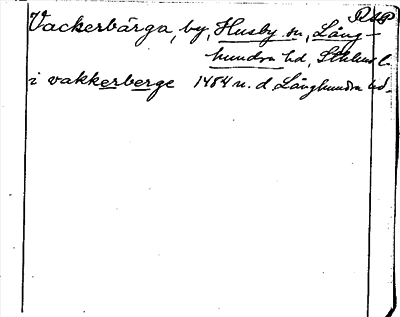 RAP
Vackerbärga, by, Husby sn, Lång-
hundra hd, Sthlms l.
i vakkerberge 1484 n. d. Långhundra hd.